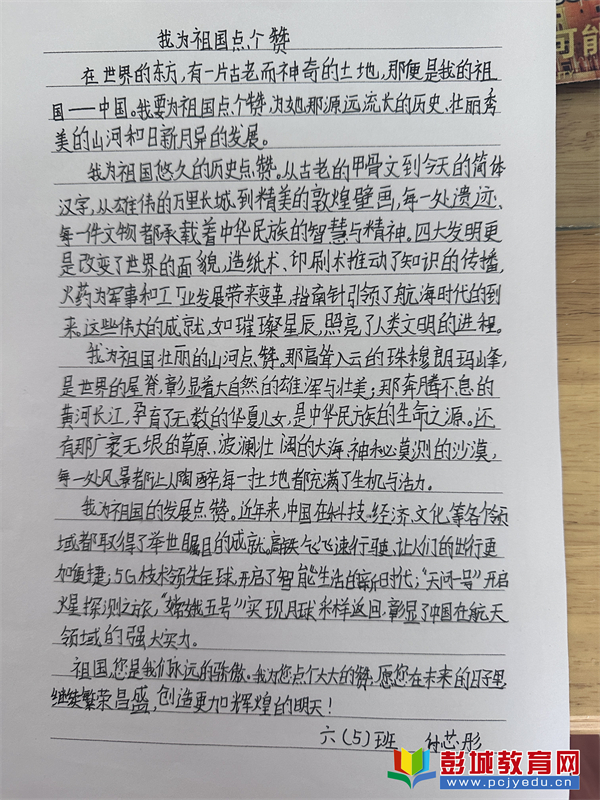 我为祖国点个赞
在世界的东方，有一片古老而神奇的土地，那便是我的祖
国——中国。我要为祖国点个赞，为她那源远流长的历史、壮丽秀
美的山河和日新月异的发展。
我为祖国悠久的历史点赞。从古老的甲骨文到今天的简体
汉字，从雄伟的万里长城，到精美的敦煌壁画，每一处遗迹、
每一件文物都承载着中华民族的智慧与精神。四大发明更
是改变了世界的面貌，造纸术、印刷术推动了知识的传播，
火药为军事和工业发展带来变革，指南针引领了航海时代的到
来。这些伟大的成就，如璀璨星辰，照亮了人类文明的进程。
我为祖国壮丽的山河点赞。那高耸入云的珠穆朗玛峰，
是世界的屋脊，彰显着大自然的雄浑与壮美；那奔腾不息的
黄河长江，孕育了无数的华夏儿女，是中华民族的生命之源。还
有那广袤无垠的草原、波澜壮阔的大海、神秘莫测的沙漠，
每一处风景都让人陶醉，每一土地都充满了生机与活力。
我为祖国的发展点赞。近年来，中国在科技、经济、文化等各个领
域都取得了举世瞩目的成就。高铁飞速行驶，让人们的出行更
加便捷；5G技术领先全球，开启了智能生活的新时代；“天问一号”开启
火星探测之旅，“嫦娥五号”实现月球采样返回，彰显了中国在航天
领域的强大实力。
祖国，您是我们永远的骄傲。我为您点个大大的赞，愿您在未来的日子里
继续繁荣昌盛，创造更加辉煌的明天！
六（5）班 付芯彤
可能
彭城教育网
www.pcjyedu.cn